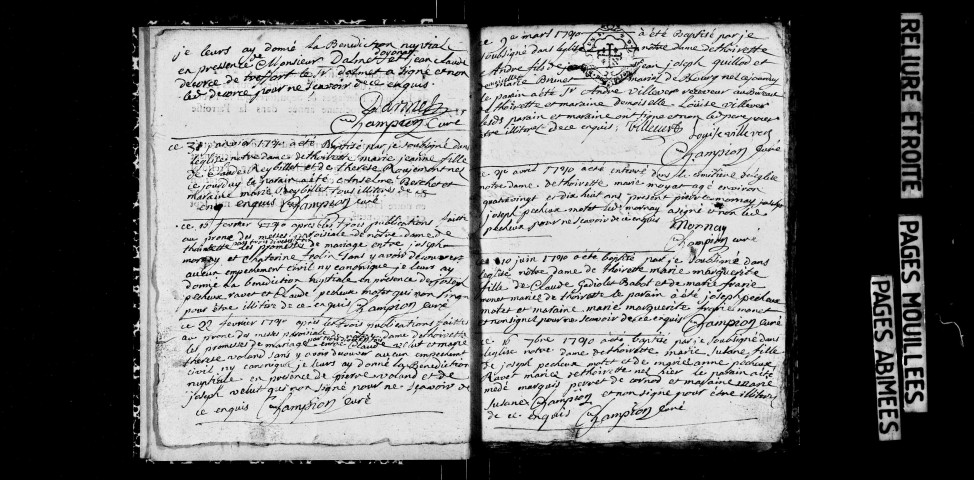 je leurs ay donné la Benediction nuptiale
en presence de Monsieur Dalmet et jean claude
de trefort le Sr Dalmet a signé et non
led pour ne scavoir de ce enquis
Champion Curé
ce 31 janvier 1790 a été Baptisé par je soubsigné dans
l'eglise notre dame dethoirette marie jeanne fille
de claude Reybillet et de therese Roujemont nes
ce jourduy le parain a été Anselme Berchot et
maraine marie Reybillet tous illitires de
enquis Champion curé
ce février 1790 apres les trois publications faitte
au prone des messes paroisiale de notre dame de
thoirette les promesses de mariage entre joseph
mornay et Chaterine froin sans y avoir decouvert
aucun empechement civil ny canonique je leurs ay
donné la benediction nuptiale en presence de joseph
pecheux ravet et Claude pecheux motet qui non signé
pour être illitire de ce enquis Champion Curé
ce 22 fevrier 1790 apres les trois publications faittes
au prone des messes paroisiale notre dame dethoirette
les promesses de mariage entre Claude velut et marie
therese voland sans y avoir decouver aucun empechement
civil ny canonique je leurs ay donné la Benediction
nuptiale en presence de pierre voland et de
joseph velut qui non signé pour ne scavoir de
ce enquis Champion Curé
ce 9e mars 1790 a été Baptisé par je
soubsigné dans leglise notre dame dethoirette
Andre fils de jean joseph quillod et
marie Brunet mariés de Bourg nes
le parain a été Sr André Villevert receveur au Bureau
thoirette et maraine demoiselle Louise villever
parain et maraine on signé et non le pere pour
etre illitire de ce enquis villevert Louise villevert
Champion Curé
ce avril 1790 a été enterré dans le cimitiere de leglise
notre dame dethoirette marie moyat agé environ
quatrevingt et dix huit ans present pierre mornay
joseph pecheux motet led mornay a signé et non led
pecheux pour ne scavoir de ce enquis Mornay
Champion curé
ce 10 juin 1790 a été baptisé par je soubsigné dans
l'eglise notre dame de thoirette marie marguerite
fille de Claude Gadiolet Babot et de marie
monet mariés de thoirette le parain a été joseph pecheux
motet et maraine marie marguerite monet
et non signé pour ne scavoir de ce enquis Champion Curé
ce 6 7bre 1790 a été baptisé par je soubsigné dans
leglise notre dame dethoirette marie Susane fille
de joseph pecheux motet et de marie anne pecheux
Ravet mariés dethoirette né hier le parain a été
medé marquis pervet de cornod et maraine marie
Susane Champion et non signé pour être illitires
de ce enquis Champion Curé
RELIURE ETROITE
PAGES MOUILLEES
PAGES ABIMEES